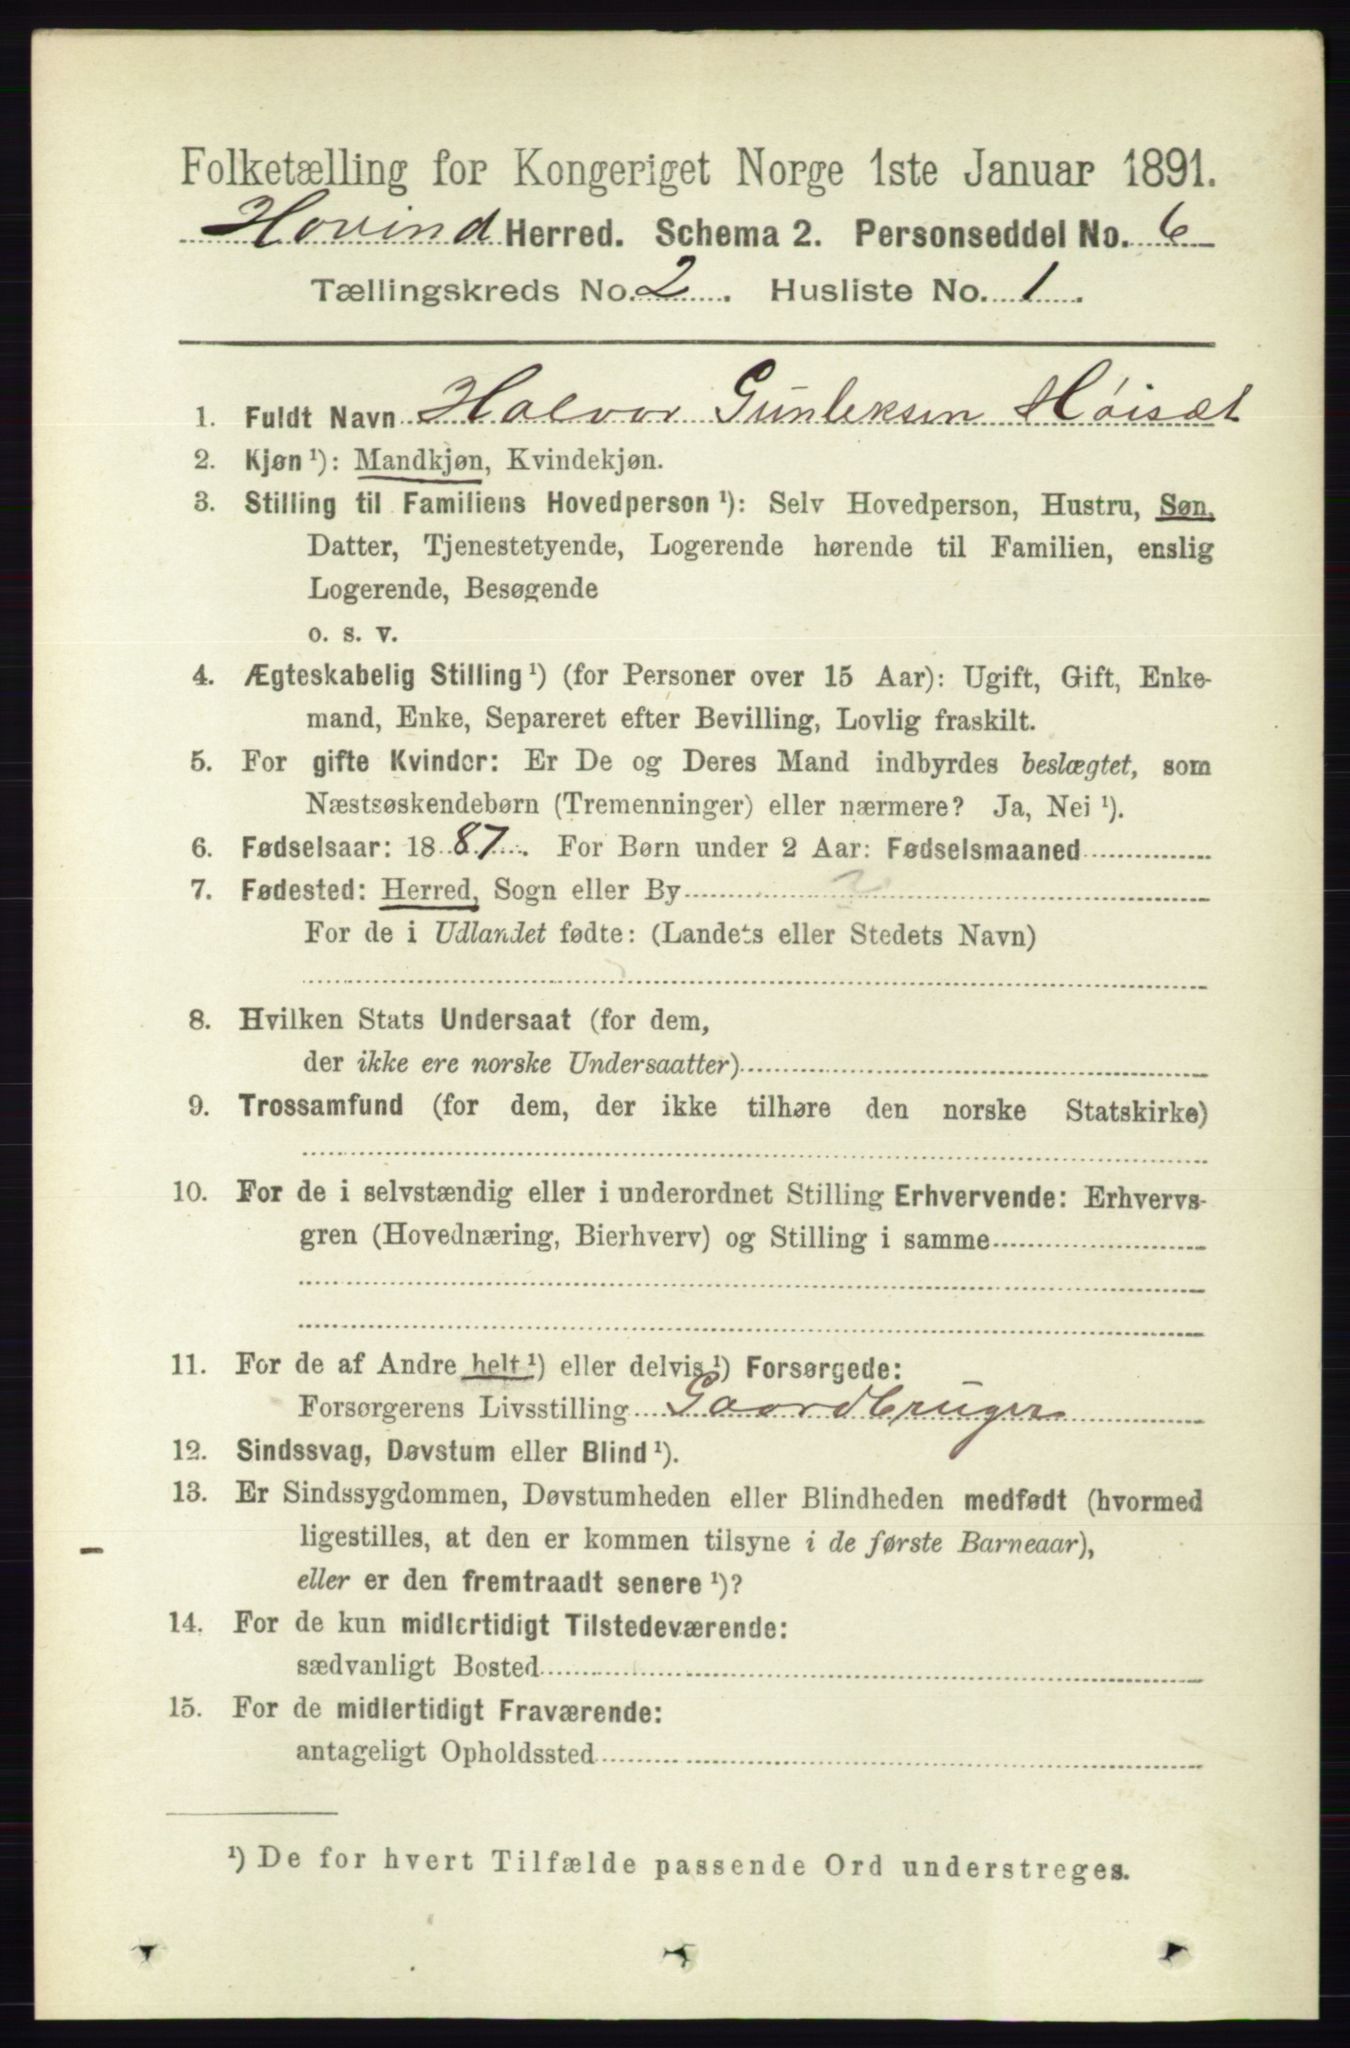 Folketælling for Kongeriget Norge 1ste Januar 1891.
Hovind Herred. Schema 2. Personseddel No. 6
Tællingskreds No. 2. Husliste No. 1.
1. Fuldt Navn Halvor Gunleksen Høisæt
2. Kjøn ¹): Mandkjøn, Kvindekjøn.
3. Stilling til Familiens Hovedperson ¹): Selv Hovedperson, Hustru, Søn,
Datter, Tjenestetyende, Logerende hørende til Familien, enslig
Logerende, Besøgende
o. s. v.
4. Ægteskabelig Stilling ¹) (for Personer over 15 Aar): Ugift, Gift, Enke-
mand, Enke, Separeret efter Bevilling, Lovlig fraskilt.
5. For gifte Kvinder: Er De og Deres Mand indbyrdes beslægtet, som
Næstsøskendebørn (Tremenninger) eller nærmere? Ja, Nei ¹).
6. Fødselsaar: 1887. For Børn under 2 Aar: Fødselsmaaned
7. Fødested: Herred, Sogn eller By
For de i Udlandet fødte: (Landets eller Stedets Navn)
8. Hvilken Stats Undersaat (for dem,
der ikke ere norske Undersaatter)
9. Trossamfund (for dem, der ikke tilhøre den norske Statskirke)
10. For de i selvstændig eller i underordnet Stilling Erhvervende: Erhvervs-
gren (Hovednæring, Bierhverv) og Stilling i samme
11. For de af Andre helt ¹) eller delvis ¹) Forsørgede:
Forsørgerens Livsstilling Gaardbruger
12. Sindssvag, Døvstum eller Blind ¹).
13. Er Sindssygdommen, Døvstumheden eller Blindheden medfødt (hvormed
ligestilles, at den er kommen tilsyne i de første Barneaar),
eller er den fremtraadt senere ¹)?
14. For de kun midlertidigt Tilstedeværende:
sædvanligt Bosted
15. For de midlertidigt Fraværende:
antageligt Opholdssted
¹) De for hvert Tilfælde passende Ord understreges.